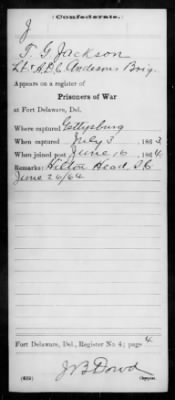 (Confederate.)
J
T. G. Jackson
Lt & A.D.C Andersons Brig
Appears on a register of
Prisoners of War
at Fort Delaware, Del.
Where captured Gettysburg
When captured July 3, 1863
When joined post June 16, 1864
Remarks: Hilton Head S.C
June 26/64
Fort Delaware, Del., Register No. 4; page 4
J B Dowd
Copyist.